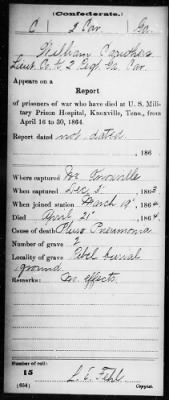 (Confederate.)
C 2 Cav. Ga.
William Caruthers
Lieut Co. C 2 Regt. Ga. Cav.
Appears on a
Report
of prisoners of war who have died at U. S. Mili-
tary Prison Hospital, Knoxville, Tenn., from
April 16 to 30, 1864.
Report dated not dated
, 186
Where captured Knoxville
When captured Dec 5, 1863
When joined station March 19, 1864
Died April 21, 1864
Cause of death Pleuro Pneumonia
Number of grave 2
Locality of grave Rebel burial
ground
Remarks: no effects.
Number of roll:
15
(654)
Copyist.